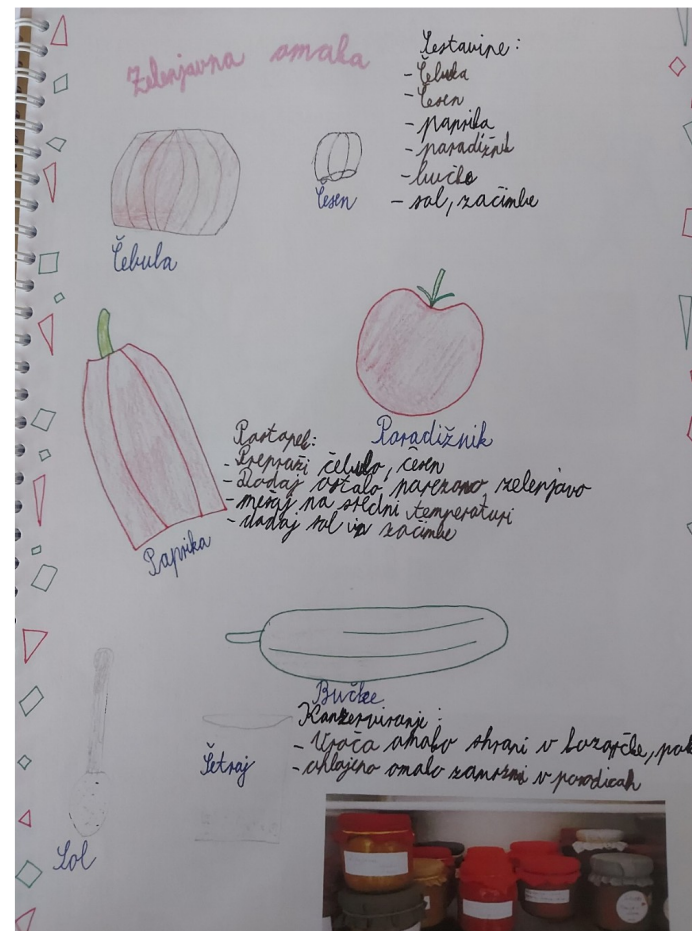 Zelenjavna omaka
Sestavine:
- Čebula
- Česen
- paprika
- paradižnik
- bučke
- sol, začimbe
Čebula
Česen
Paradižnik
Paprika
Postopek:
- Prepraži čebulo, česen
- Dodaj ostalo narezano, zelenjavo
- mešaj na srednji temperaturi
- dodaj sol in začimbe
Bučke
Konzerviranje:
- Vročo omako shrani v kozarčke, pok
- ohlajeno omako zamrzni v posodicah
Šetraj
Sol